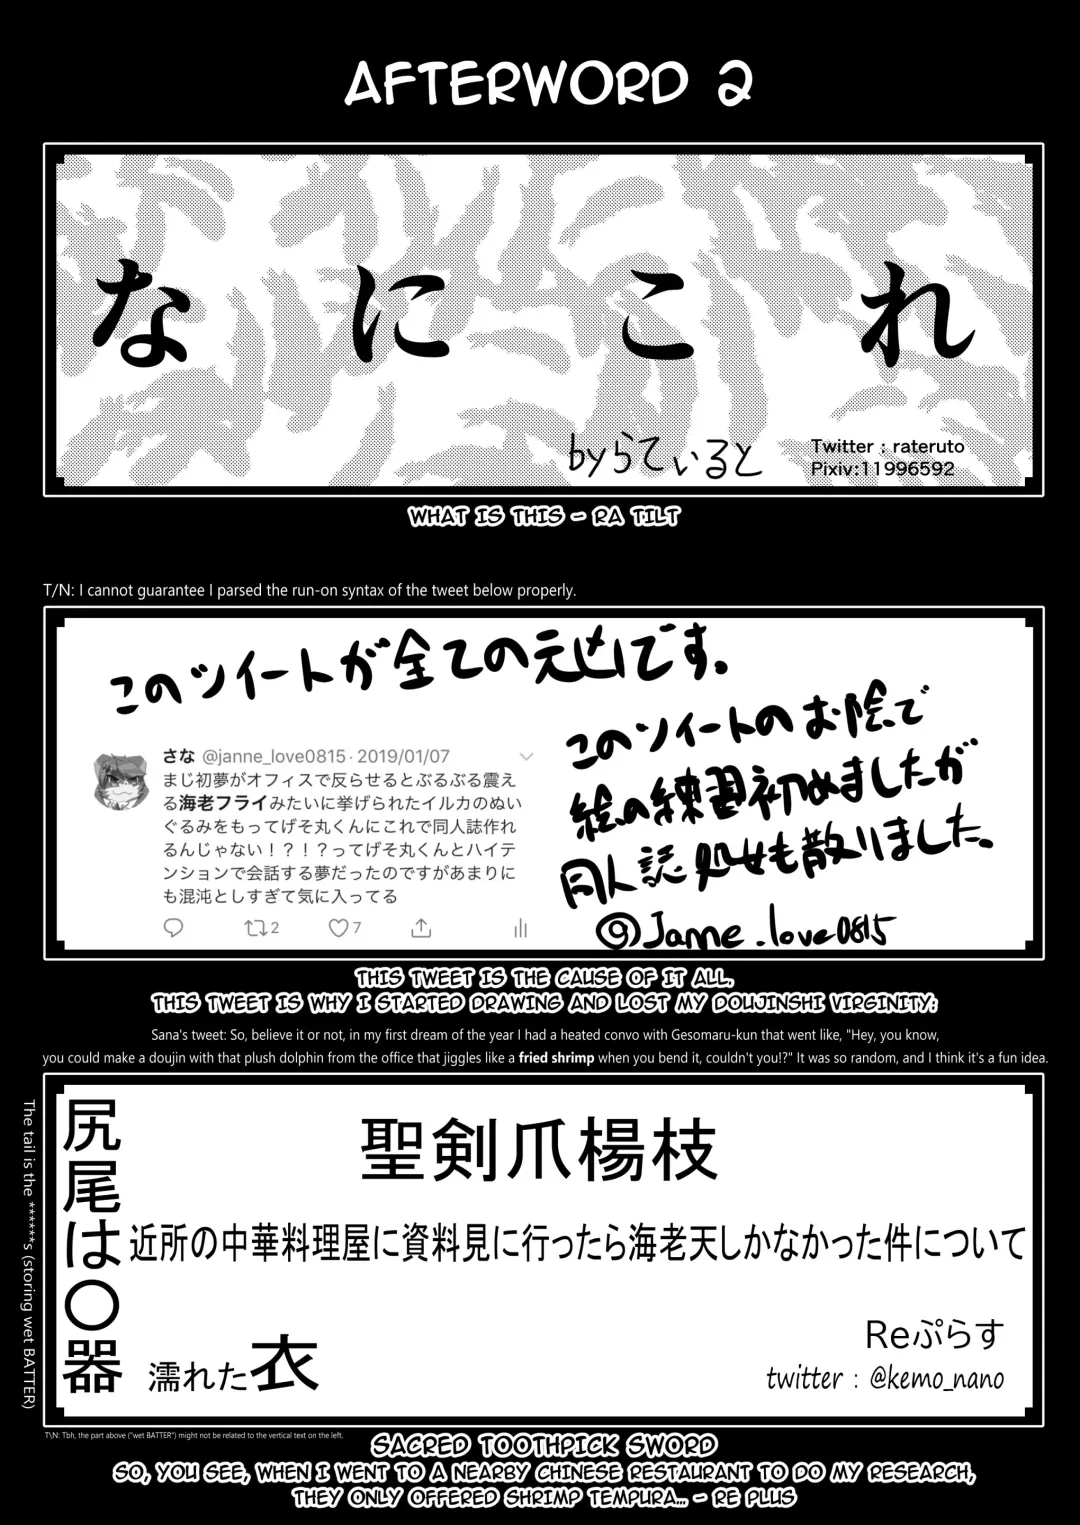 AFTERWORD 2
なにこれ
byらてぃると
Twitter : rateruto
Pixiv:11996592
WHAT IS THIS - RA TILT
T/N: I cannot guarantee I parsed the run-on syntax of the tweet below properly.
このツイートが全ての元凶です。
さな @janne_love0815 · 2019/01/07
まじ初夢がオフィスで反らせるとぶるぶる震え
る海老フライみたいに挙げられたイルカのぬい
ぐるみをもってげそ丸くんにこれで同人誌作れ
るんじゃない！？！？ってげそ丸くんとハイテ
ンションで会話する夢だったのですがあまりに
も混沌としすぎて気に入ってる
2
7
このツイートのお陰で
絵の練習初めましたが
同人誌処女も散りました。
@Janne_love0815
THIS TWEET IS THE CAUSE OF IT ALL.
THIS TWEET IS WHY I STARTED DRAWING AND LOST MY DOUJINSHI VIRGINITY:
Sana's tweet: So, believe it or not, in my first dream of the year I had a heated convo with Gesomaru-kun that went like, "Hey, you know,
you could make a doujin with that plush dolphin from the office that jiggles like a fried shrimp when you bend it, couldn't you!?" It was so random, and I think it's a fun idea.
The tail is the ******s (storing wet BATTER)
尻尾は〇器
聖剣爪楊枝
近所の中華料理屋に資料見に行ったら海老天しかなかった件について
濡れた衣
Reぷらす
twitter : @kemo_nano
T\N: Tbh, the part above ("wet BATTER") might not be related to the vertical text on the left.
SACRED TOOTHPICK SWORD
SO, YOU SEE, WHEN I WENT TO A NEARBY CHINESE RESTAURANT TO DO MY RESEARCH,
THEY ONLY OFFERED SHRIMP TEMPURA... - RE PLUS